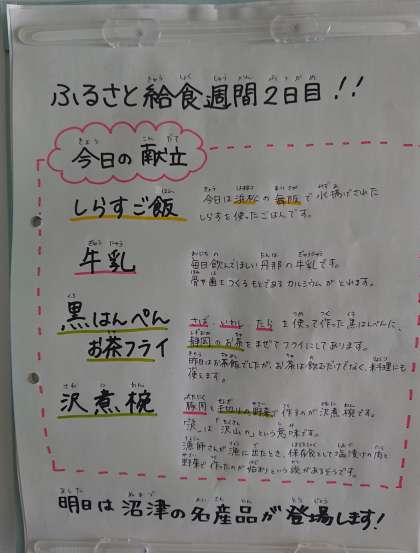 ふるさと給食週間2日目!!
今日の献立
しらすご飯
今日は浜松の舞阪で水揚げされた
しらすを使ったごはんです。
牛乳
毎日飲んでほしい丹那の牛乳です。
骨や歯をつくるもとであるカルシウムがとれます。
黒はんぺん
お茶フライ
さば・いわし・たらを使って作った黒はんぺんに、
静岡のお茶をまぜてフライにしてあります。
昨日はお茶飯でしたが、お茶は飲むだけでなく、料理にも
使えます。
沢煮椀
豚肉と千切りの野菜で作るのが沢煮椀です。
「沢」は「沢山の」という意味です。
漁師さんが漁に出たとき、保存食として塩漬けの肉と
野菜で作ったのが始まりという説があるそうです。
明日は沼津の名産品が登場します!